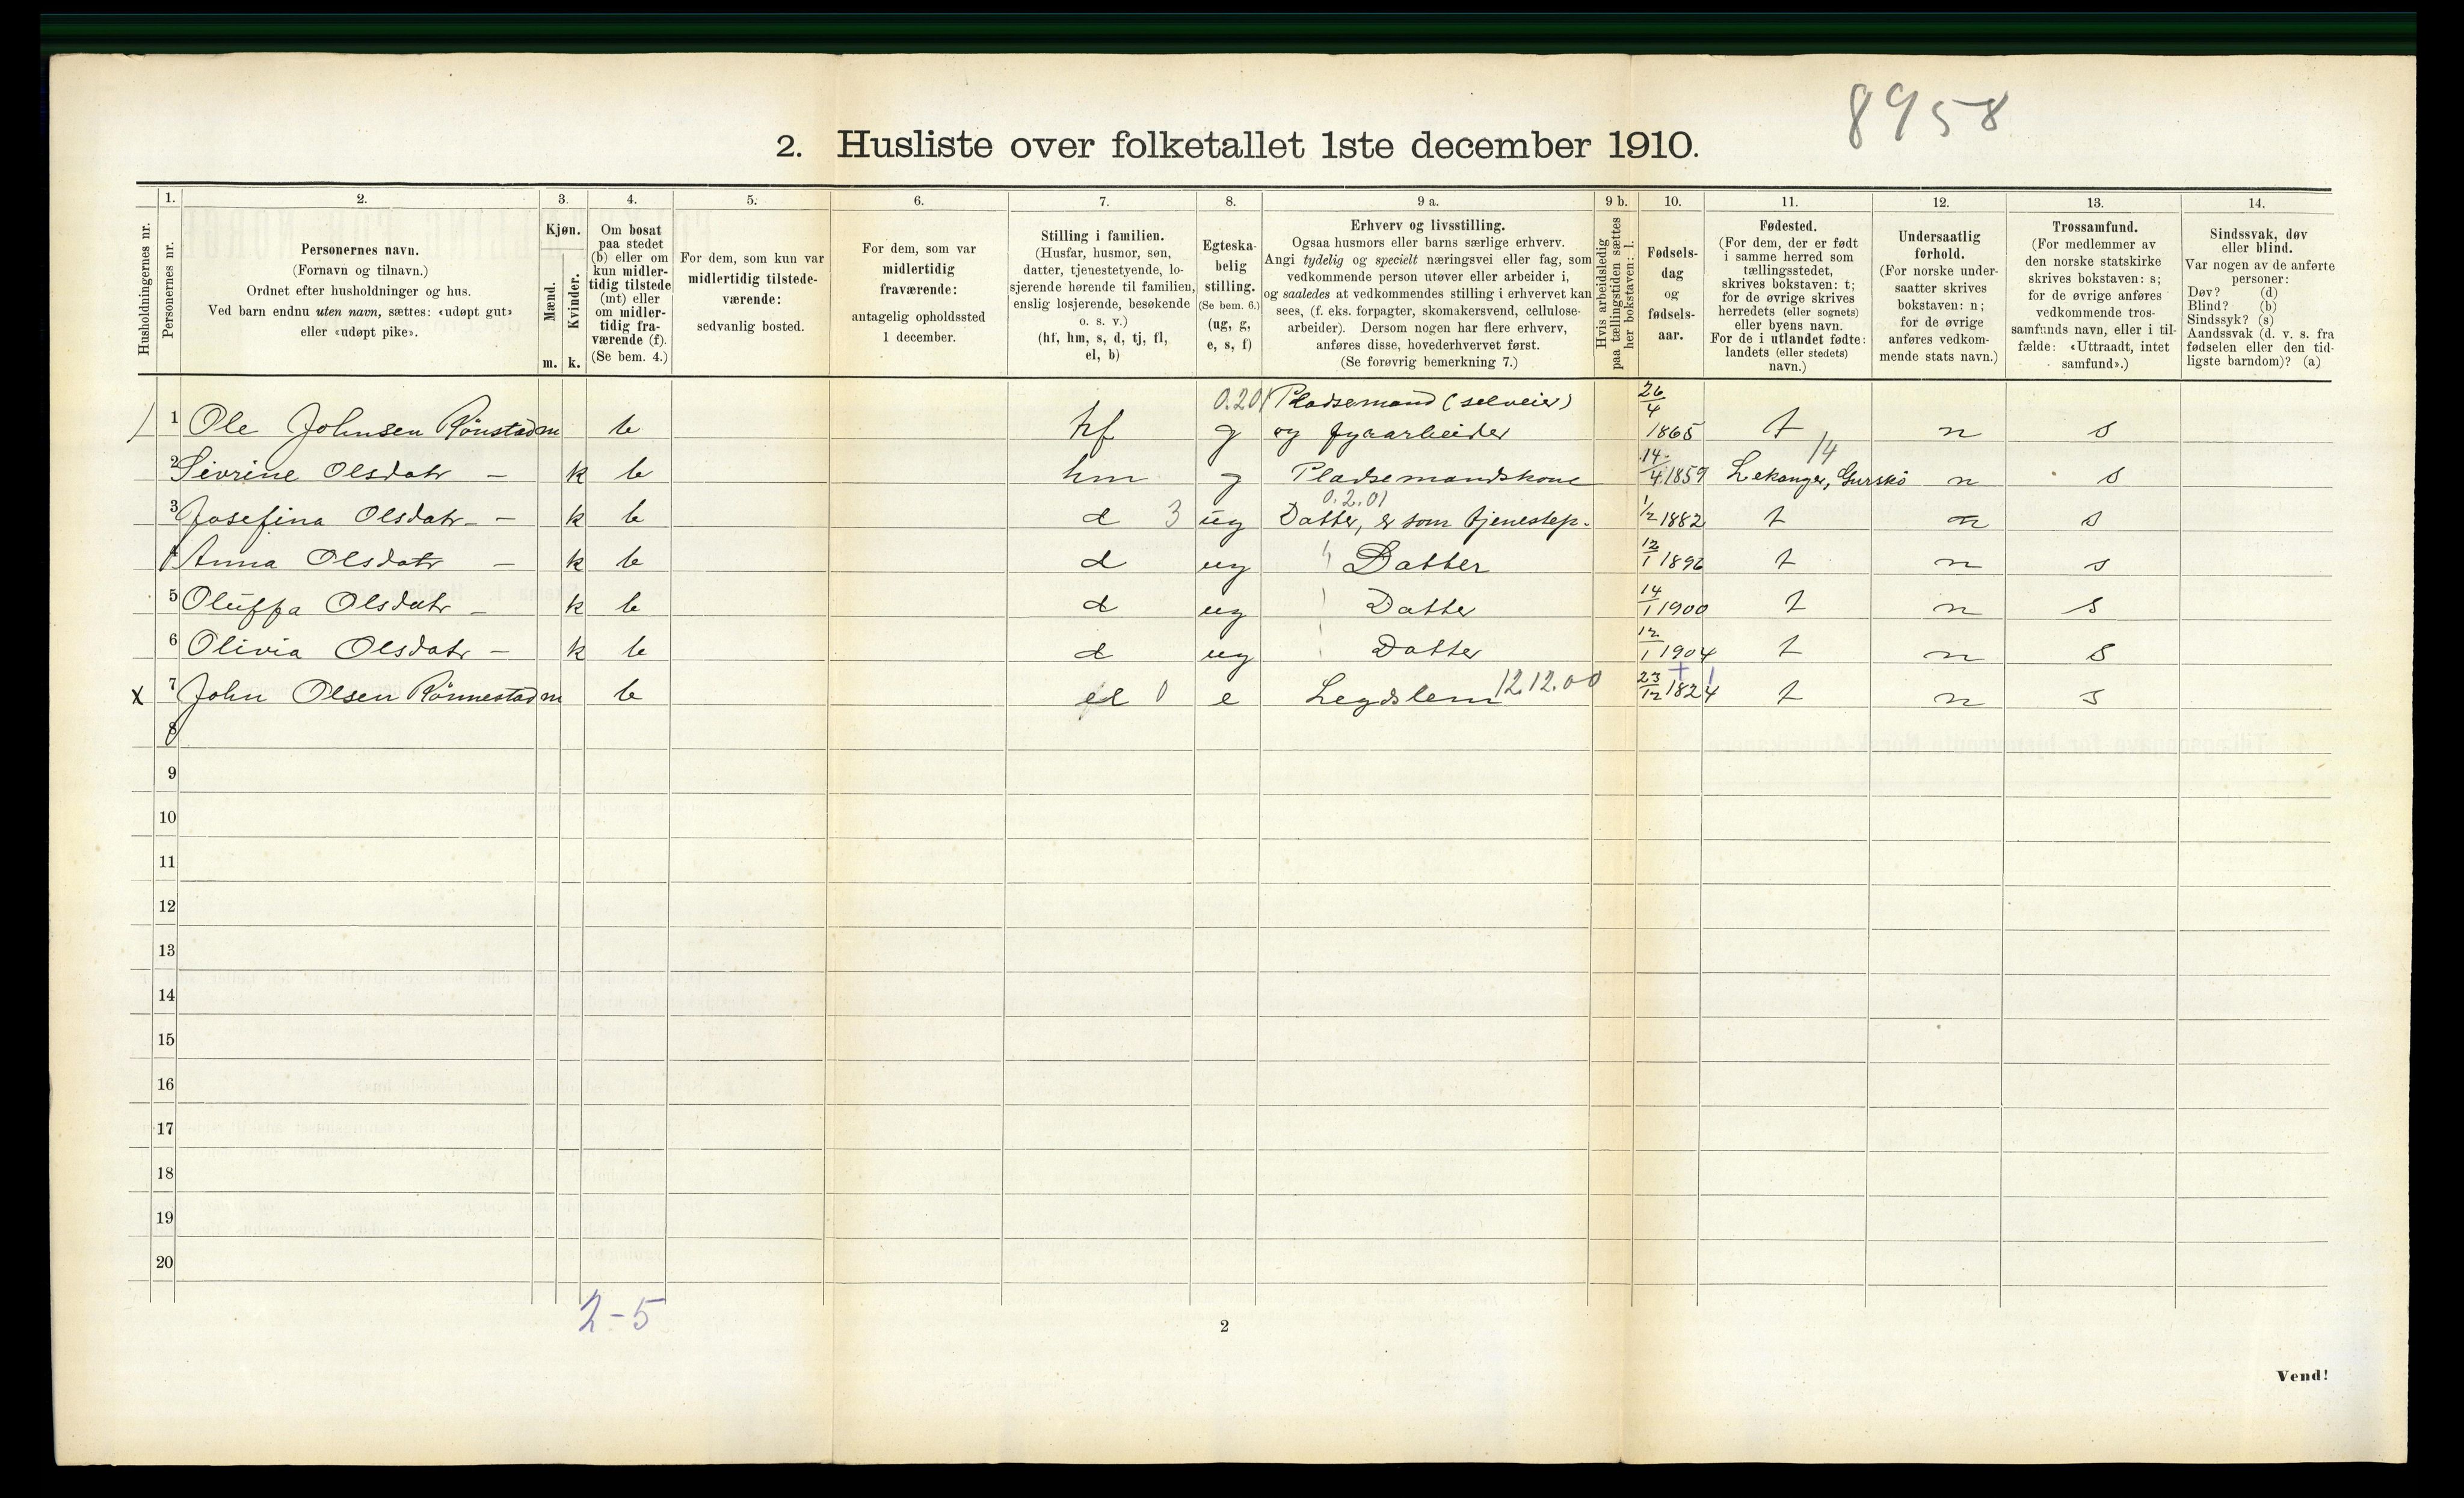 8958
2. Husliste over folketallet 1ste december 1910.
Husholdningernes nr.
1. Personernes nr.
2. Personernes navn.
(Fornavn og tilnavn.)
Ordnet efter husholdninger og hus.
Ved barn endnu uten navn, sættes: «udøpt gut»
eller «udøpt pike».
3. Kjøn.
Mænd. m.
Kvinder. k.
4. Om bosat
paa stedet
(b) eller om
kun midler-
tidig tilstede
(mt) eller
om midler-
tidig fra-
værende (f).
(Se bem. 4.)
5. For dem, som kun var
midlertidig tilstede-
værende:
sedvanlig bosted.
6. For dem, som var
midlertidig
fraværende:
antagelig opholdssted
1 december.
7. Stilling i familien.
(Husfar, husmor, søn,
datter, tjenestetyende, lo-
sjerende hørende til familien,
enslig losjerende, besøkende
o. s. v.)
(hf, hm, s, d, tj, fl,
el, b)
8. Egteska-
belig
stilling.
(Se bem. 6.)
(ug, g,
e, s, f)
9 a. Erhverv og livsstilling.
Ogsaa husmors eller barns særlige erhverv.
Angi tydelig og specielt næringsvei eller fag, som
vedkommende person utøver eller arbeider i,
og saaledes at vedkommendes stilling i erhvervet kan
sees, (f. eks. forpagter, skomakersvend, cellulose-
arbeider). Dersom nogen har flere erhverv,
anføres disse, hovederhvervet først.
(Se forøvrig bemerkning 7.)
9 b. Hvis arbeidsledig
paa tællingstiden sættes
her bokstaven: l.
10. Fødsels-
dag
og
fødsels-
aar.
11. Fødested.
(For dem, der er født
i samme herred som
tællingsstedet,
skrives bokstaven: t;
for de øvrige skrives
herredets (eller sognets)
eller byens navn.
For de i utlandet fødte:
landets (eller stedets)
navn.)
12. Undersaatlig
forhold.
(For norske under-
saatter skrives
bokstaven: n;
for de øvrige
anføres vedkom-
mende stats navn.)
13. Trossamfund.
(For medlemmer av
den norske statskirke
skrives bokstaven: s;
for de øvrige anføres
vedkommende tros-
samfunds navn, eller i til-
fælde: «Uttraadt, intet
samfund».)
14. Sindssvak, døv
eller blind.
Var nogen av de anførte
personer:
Døv? (d)
Blind? (b)
Sindssyk? (s)
Aandssvak (d. v. s. fra
fødselen eller den tid-
ligste barndom)? (a)
0.20 Pladsemand (selveier)
1 Ole Johnsen Rönstad m b hf g og fyraarbeider 26/4 1865 t n s
14
2 Sivrine Olsdatr - k b hm g Pladsemandskone 14/4 1859 Lekanger, Gurskö n s
0.2.01
3 Josefina Olsdatr - k b d 3 ug Datter, er som tjenestep. 1/2 1882 t n s
4 Anna Olsdatr - k b d ug Datter 12/1 1896 t n s
5 Oluffa Olsdatr - k b d ug Datter 14/1 1900 t n s
6 Olivia Olsdatr - k b d ug Datter 12/1 1904 t n s
x 7 John Olsen Rönnestad m b el 0 e Legdslem 12.12.00 23/12 1824 t n s
8
9
10
11
12
13
14
15
16
17
18
19
20
2-5
2
Vend!